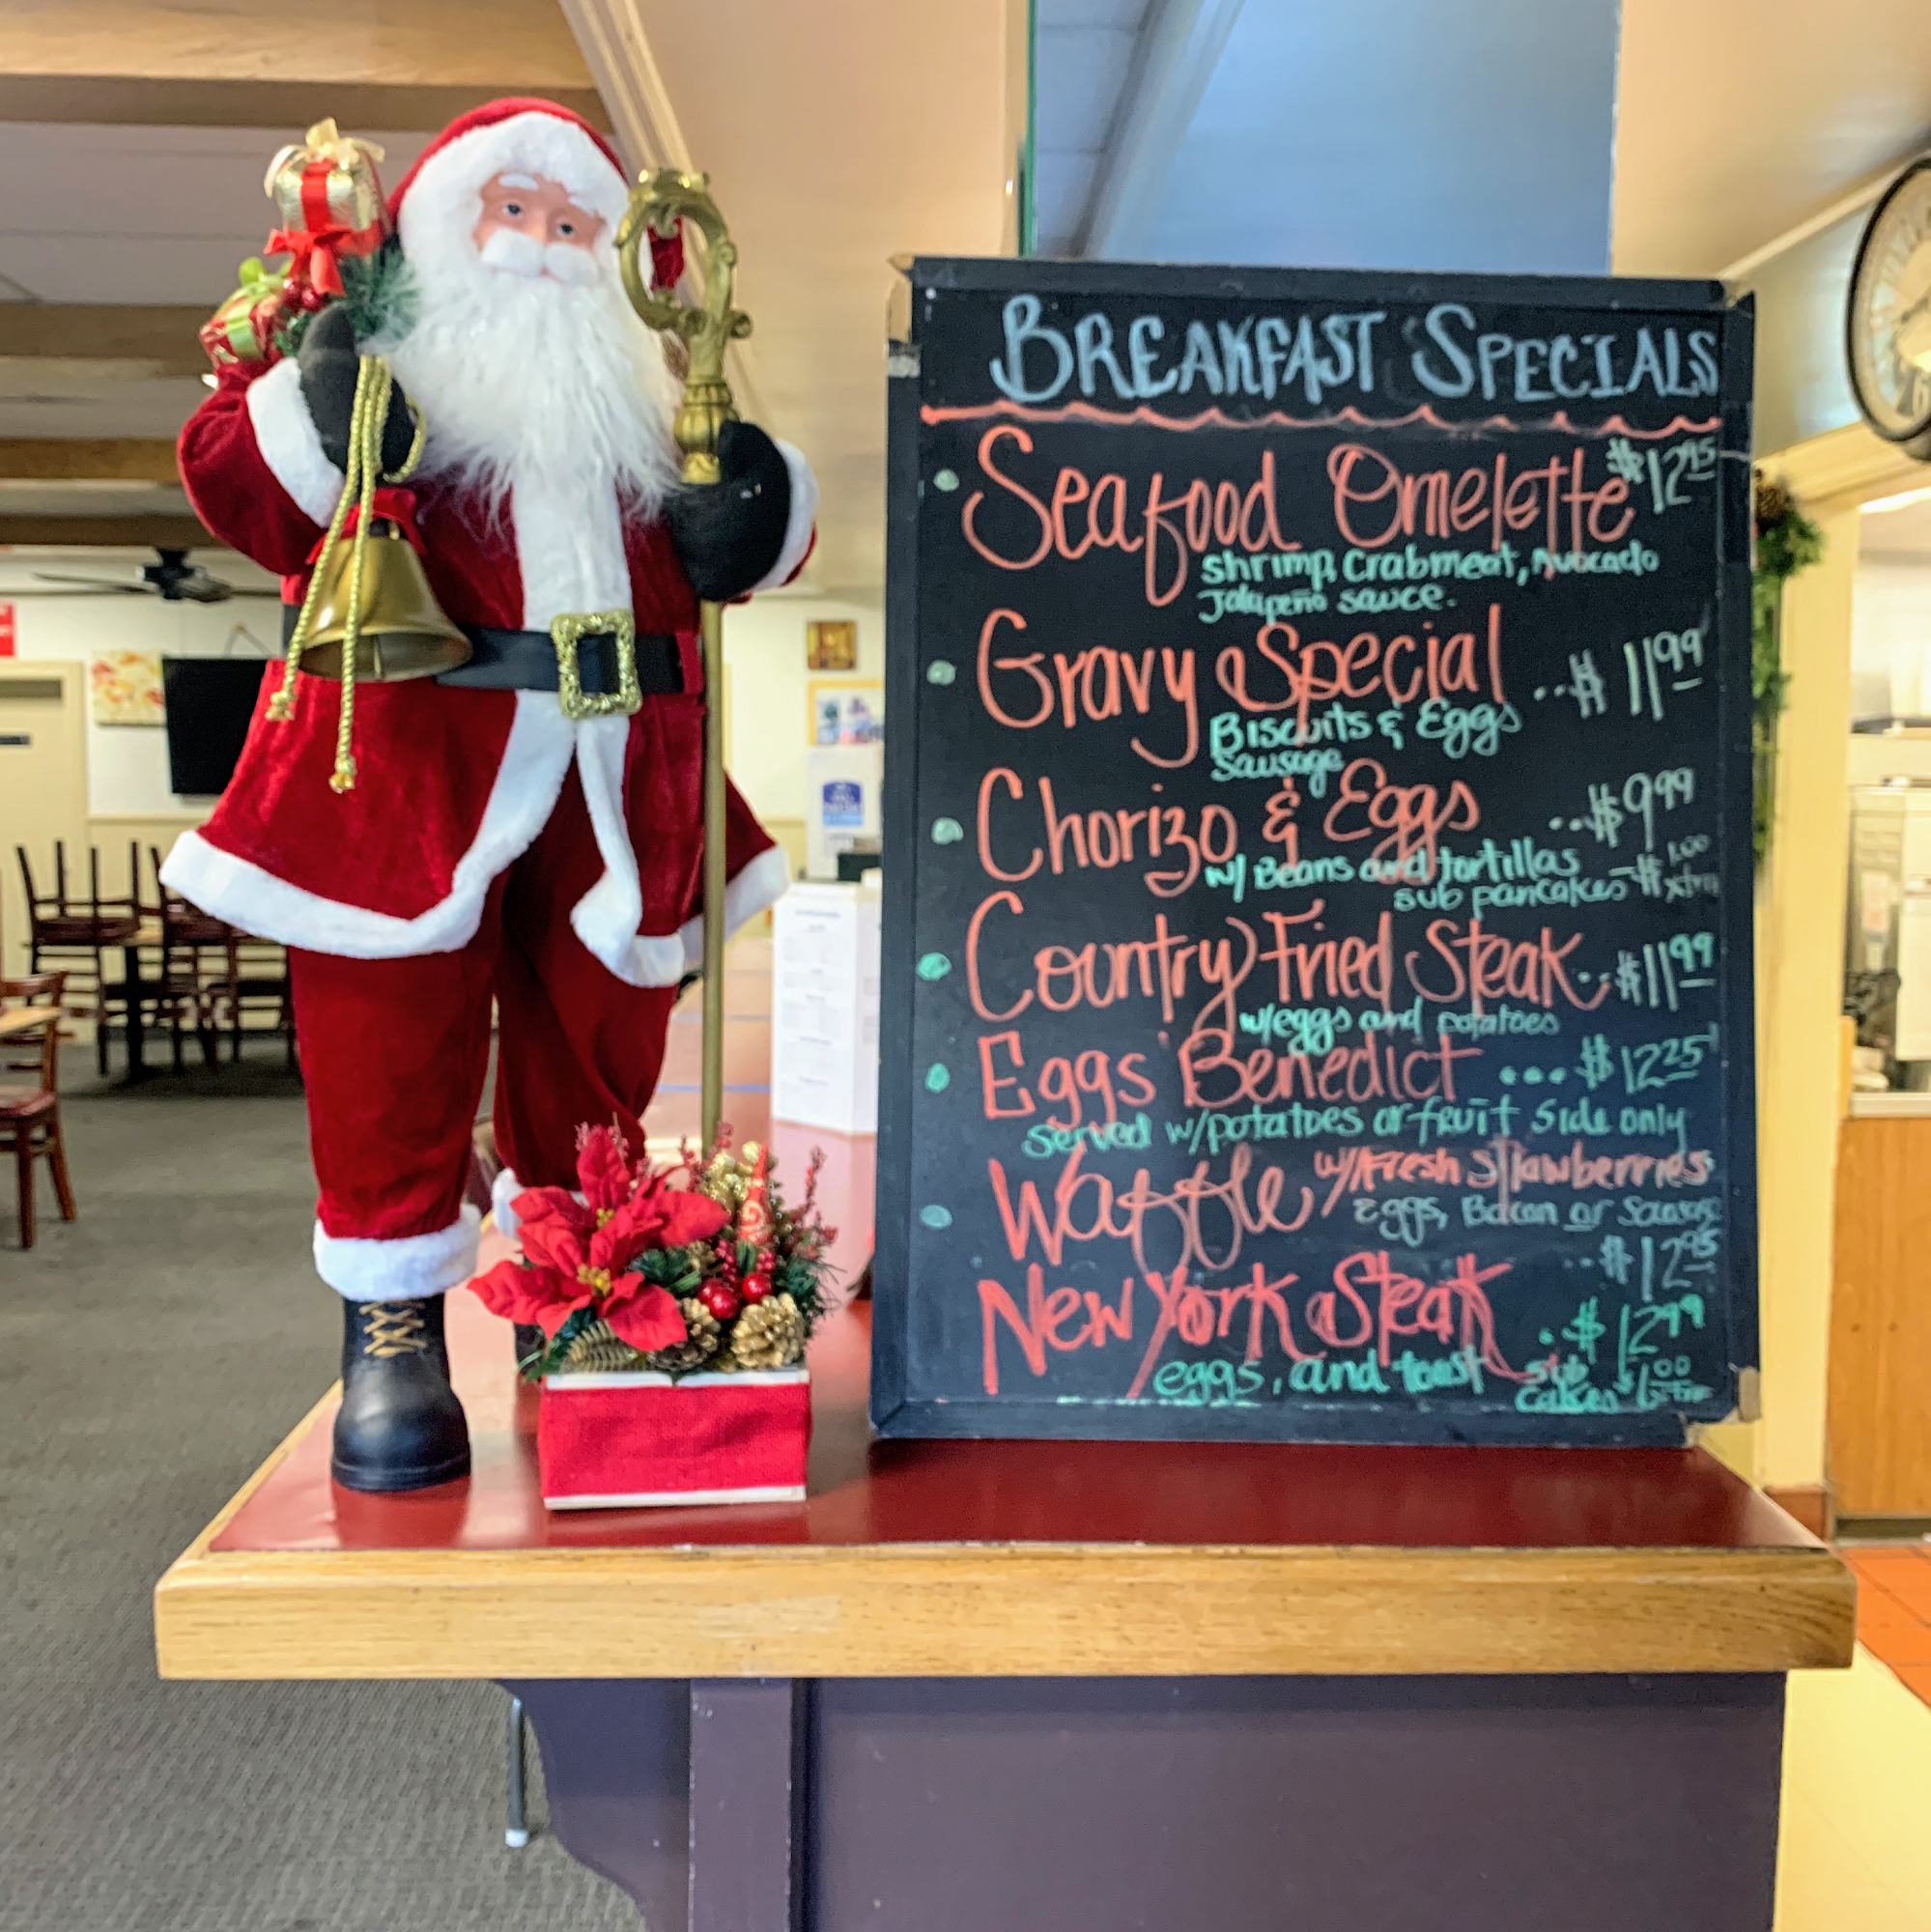 BREAKFAST SPECIALS
• Seafood Omelette $12.95
Shrimp, Crabmeat, Avocado
Jalapeño sauce.
• Gravy Special ..$11.99
Biscuits & Eggs
Sausage
• Chorizo & Eggs ..$9.99
w/ Beans and tortillas
sub pancakes - $1.00 xtra
• Country Fried Steak ..$11.99
w/eggs and potatoes
• Eggs Benedict ...$12.25
served w/potatoes or fruit side only
• Waffle w/Fresh strawberries
eggs, Bacon or Sausage
..$12.95
New York Steak ..$12.99
eggs, and toast sub
cakes $1.00 extra